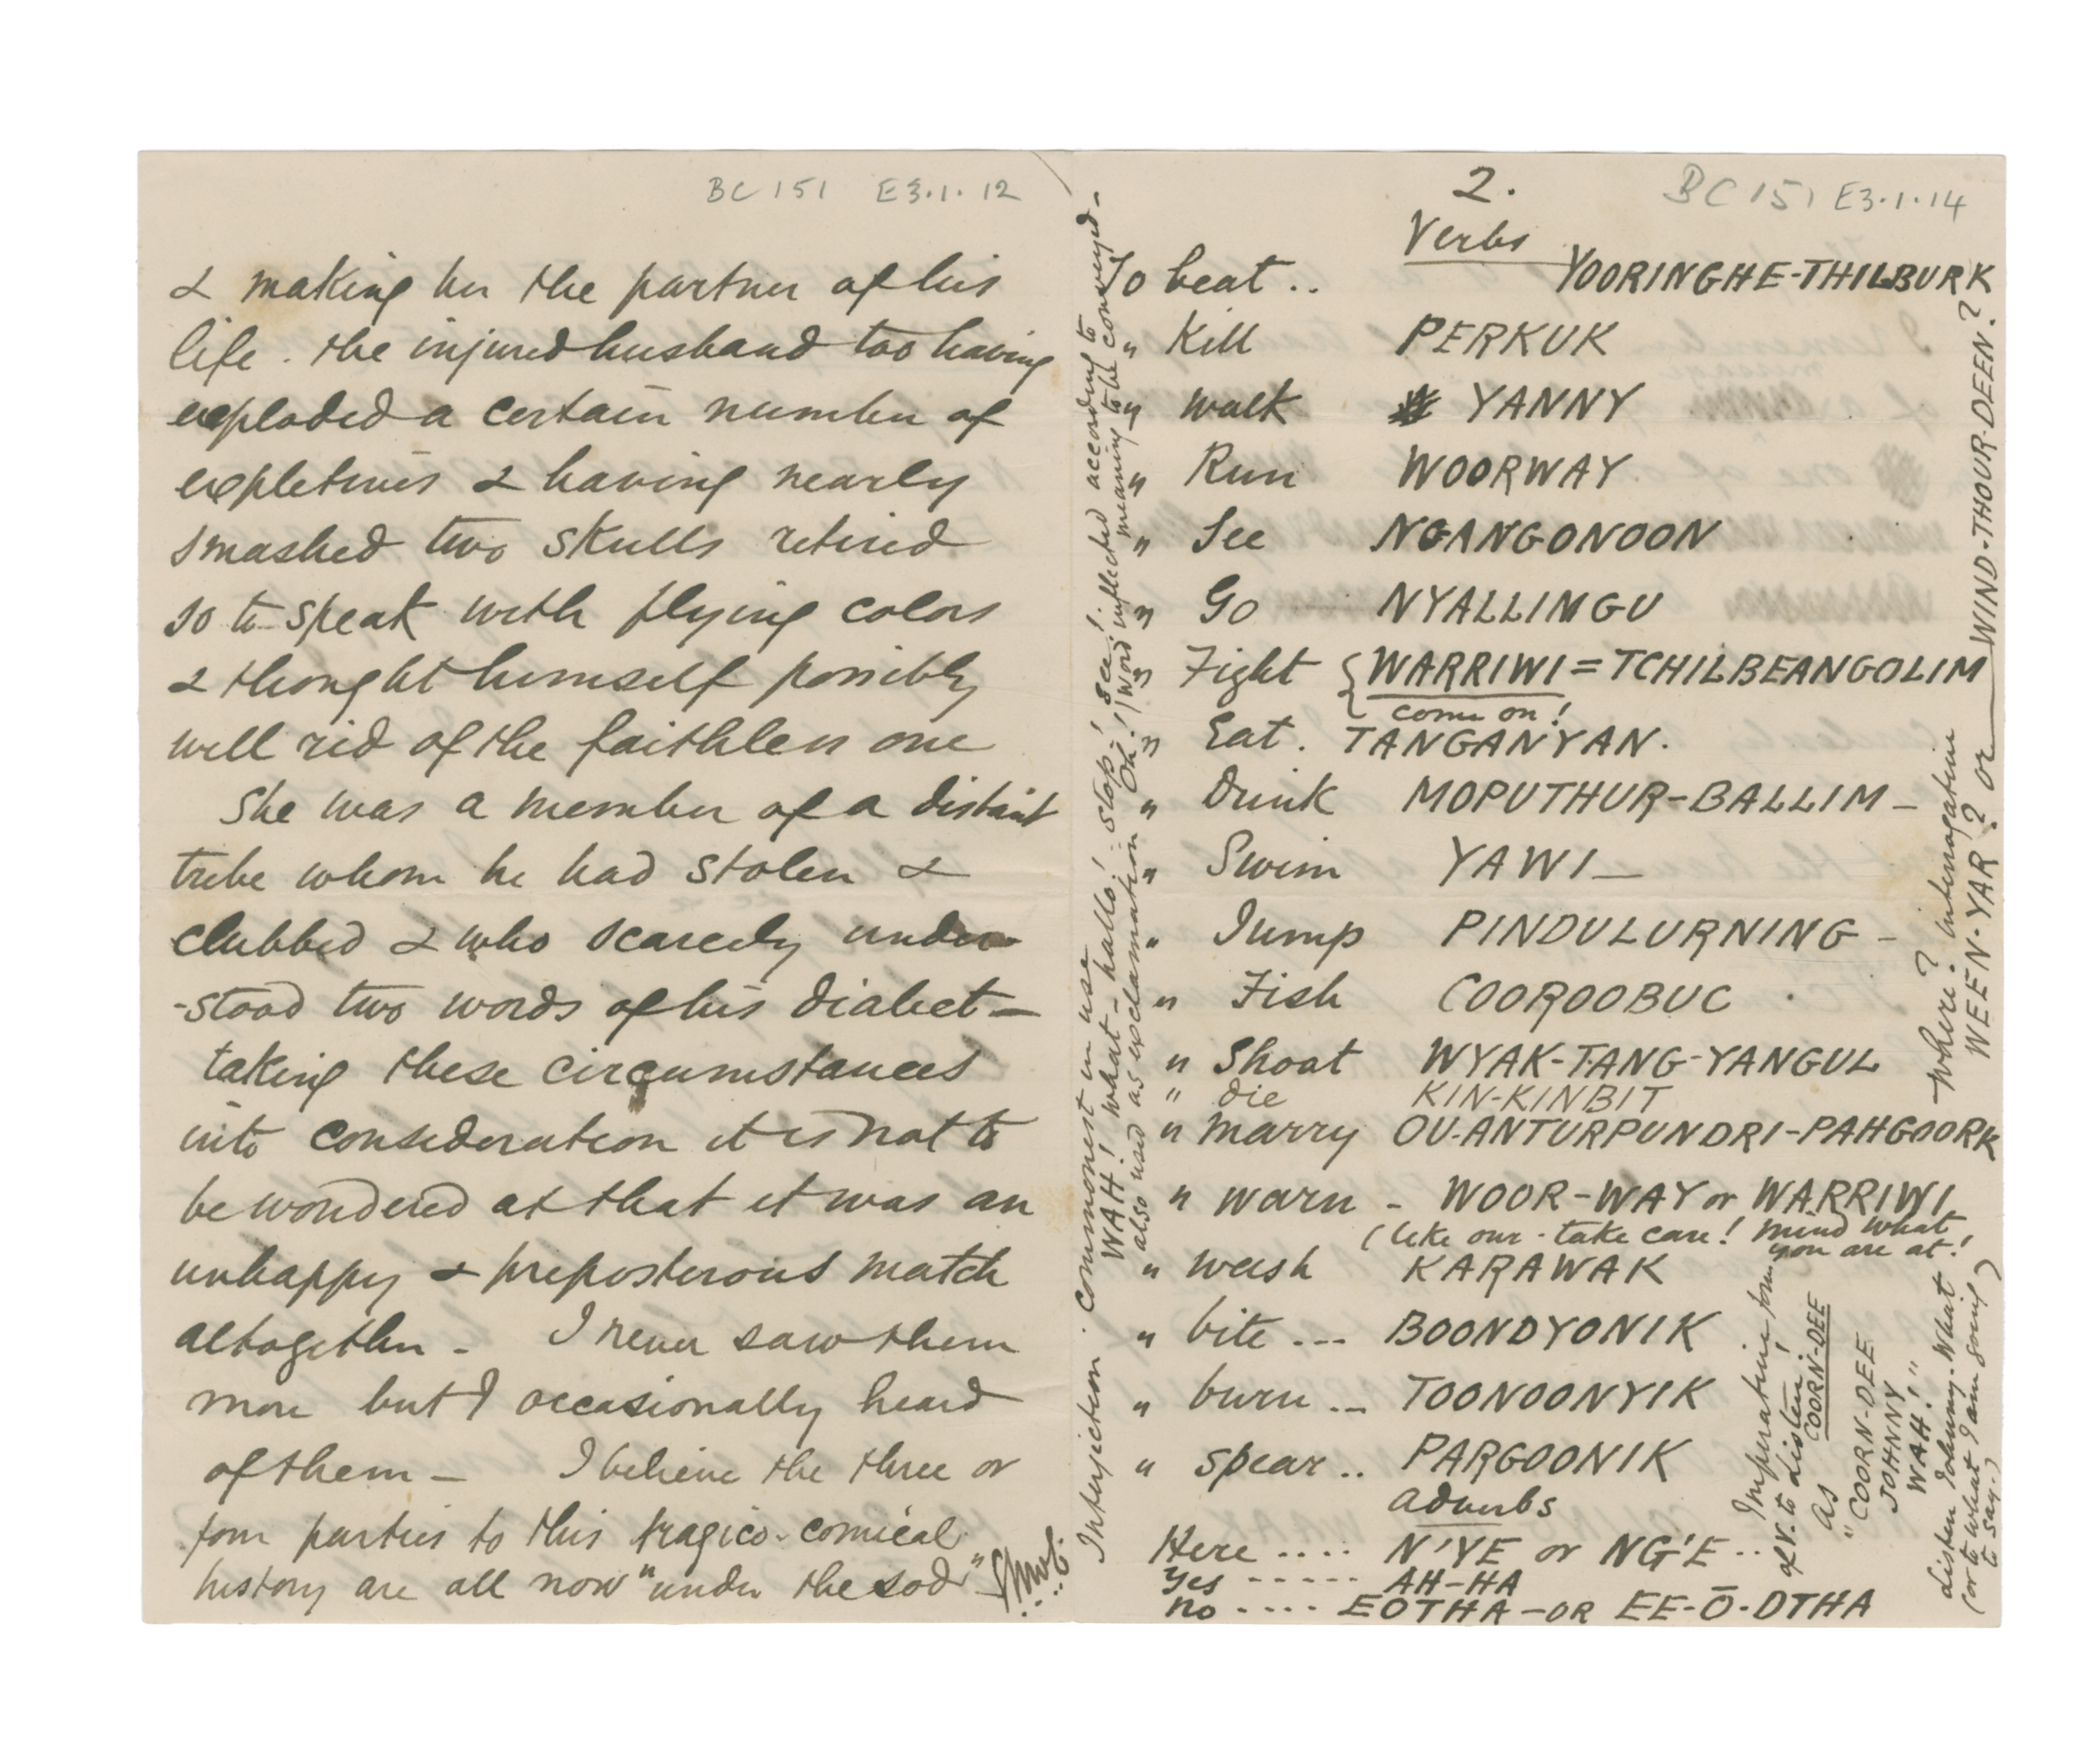 BC 151 E3.1.12
& making her the partner of his
life. the injured husband too having
exploded a certain number of
expletives & having nearly
smashed two skulls retired
so to speak with flying colors
& thought himself possibly
well rid of the faithless one
She was a member of a distant
tribe whom he had stolen &
clubbed & who scarcely under
-stood two words of his dialect -
taking these circumstances
into consideration it is not to
be wondered at that it was an
unhappy & preposterous match
altogether - I never saw them
more but I occasionally heard
of them - I believe the three or
four parties to this tragico-comical
history are all now "under the sod"
2. BC 151 E3.1.14
Verbs
To beat .. YOORINGHE-THILBURK
" Kill PERKUK
" walk YANNY
" Run WOORWAY
" See NGANGONOON
" Go NYALLIMGU
" Fight { WARRIWI = TCHILBEANGOLIM
come on!
" Eat. TANGANYAN.
" Drink MOPUTHUR-BALLIM -
" Swim YAWI -
" Jump PINDULURNING -
" Fish COOROOBUC .
" Shoot WYAK-TANG-YANGUL
" die KIN-KINBIT
" marry OU-ANTURPUNDRI-PAHGOORK
" warn - WOOR-WAY or WARRIWI
(like our - take care! mind what
you are at!
" wash KARAWAK
" bite ... BOONDYONIK
" burn ... TOONOONYIK
" spear .. PARGOONIK
adverbs
Here .... N'YE or NG'E ..
Yes ..... AH-HA
no .... EOTHA - OR EE-Ō-DTHA
Interjection. Commonest in use
WAH! what - hallo! stop! see!
also used as exclamation Oh! (Word inflected according to
meaning to be conveyed -
where? interogative
WEEN-YAR? or WIND-THOUR-DEEN?
Imperative form
of V. to listen!
as COORN-DEE
"COORN-DEE
JOHNNY
WAH!"
Listen Johnny. What
(or to what I am going)
to say.)